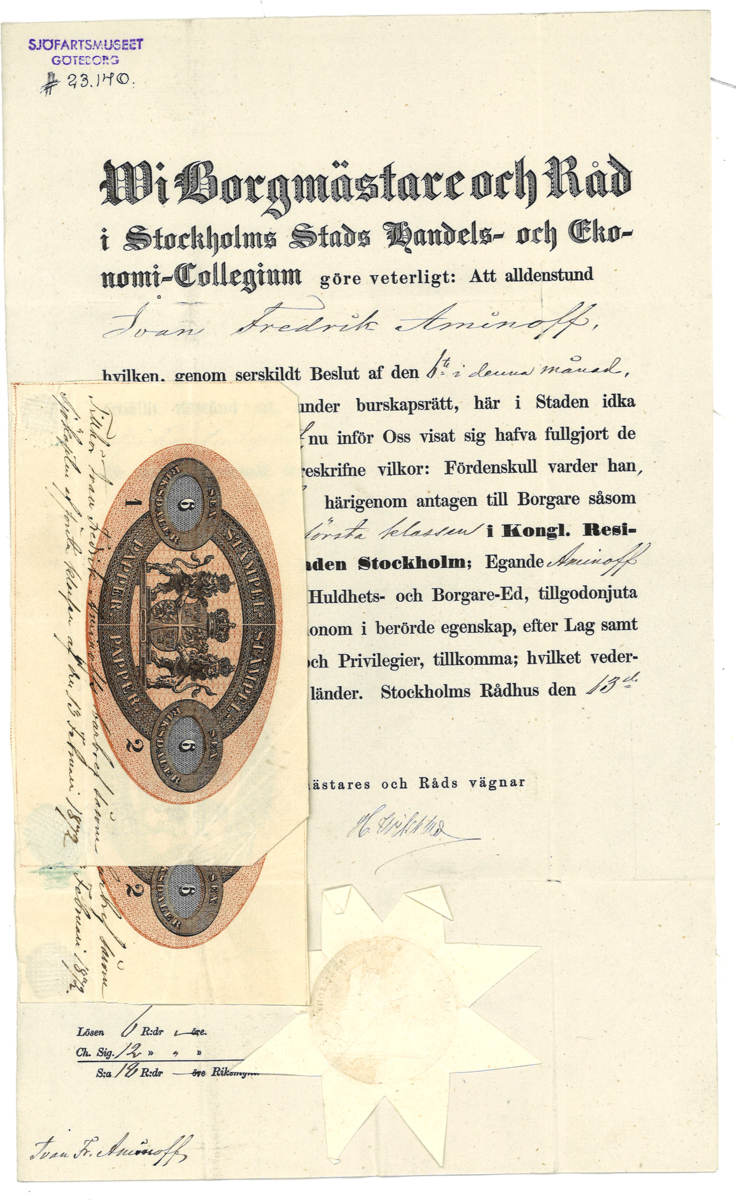 SJÖFARTSMUSEET
GÖTEBORG
# 23.140.
Wi Borgmästare och Råd
i Stockholms Stads Handels- och Eko-
nomi-Collegium göre veterligt: Att alldenstund
Ivan Fredrik Aminoff,
hvilken, genom serskildt Beslut af den 6te i denna månad,
under burskapsrätt, här i Staden idka
nu inför Oss visat sig hafva fullgjort de
reskrifne vilkor: Fördenskull varder han,
härigenom antagen till Borgare såsom
första klassen i Kongl. Resi-
den Stockholm; Egande Aminoff
Huldhets- och Borgare-Ed, tillgodonjuta
onom i berörde egenskap, efter Lag samt
och Privilegier, tillkomma; hvilket veder-
länder. Stockholms Rådhus den 13de
ästares och Råds vägnar
Till Ivan Fredrik Aminoffs såsom
Sjökapten af första klassen af den 13 Februari 1872
STÄMPEL STÄMPEL
PAPPER PAPPER
SEX 6 RIKSDALER
SEX 6 RIKSDALER
1
2
6
RIKSDALER
2
såsom
Februari 1872.
Lösen 6 R:dr " öre.
Ch. Sig. 12 " " "
S:a 18 R:dr — öre Riksmynt
Ivan Fr. Aminoff